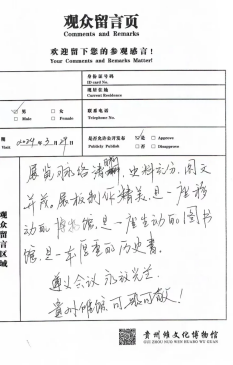 观众留言页
Comments and Remarks
欢迎留下您的参观感言！
Your Comments and Remarks Matter!
身份证号码
ID card No.
现居住地
Current Residence
男
Male
女
Female
联系电话
Telephone No.
期
Visit
2024年3月29日
是否允许公开发布
Publicity Publish
是 Approve
否 Disapprove
观众留言区域
展览脉络清晰，史料充分，图文
并茂。展板制作精美，是一座移
动的博物馆，是一座生动的图书
馆，是一本厚重的历史书。
遵义会议永放光芒。
可歌可敬！
贵州雉文化博物馆
GUI ZHOU NUO WEN HUANG WU GUAN